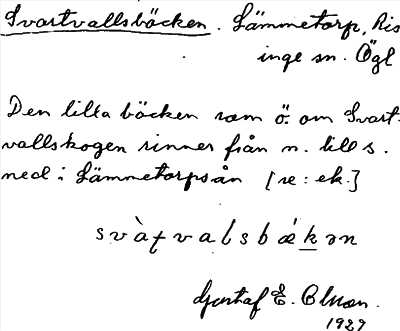 Svartvallsbäcken. Lämmetorp, Ris
inge sn. Ögl
Den lilla bäcken som ö. om Svart-
vallskogen rinner från n. till s.
ned i Lämmetorpsån [se: ek.]
svàʈvalsbækən
Gustaf E. Olsson.
1929